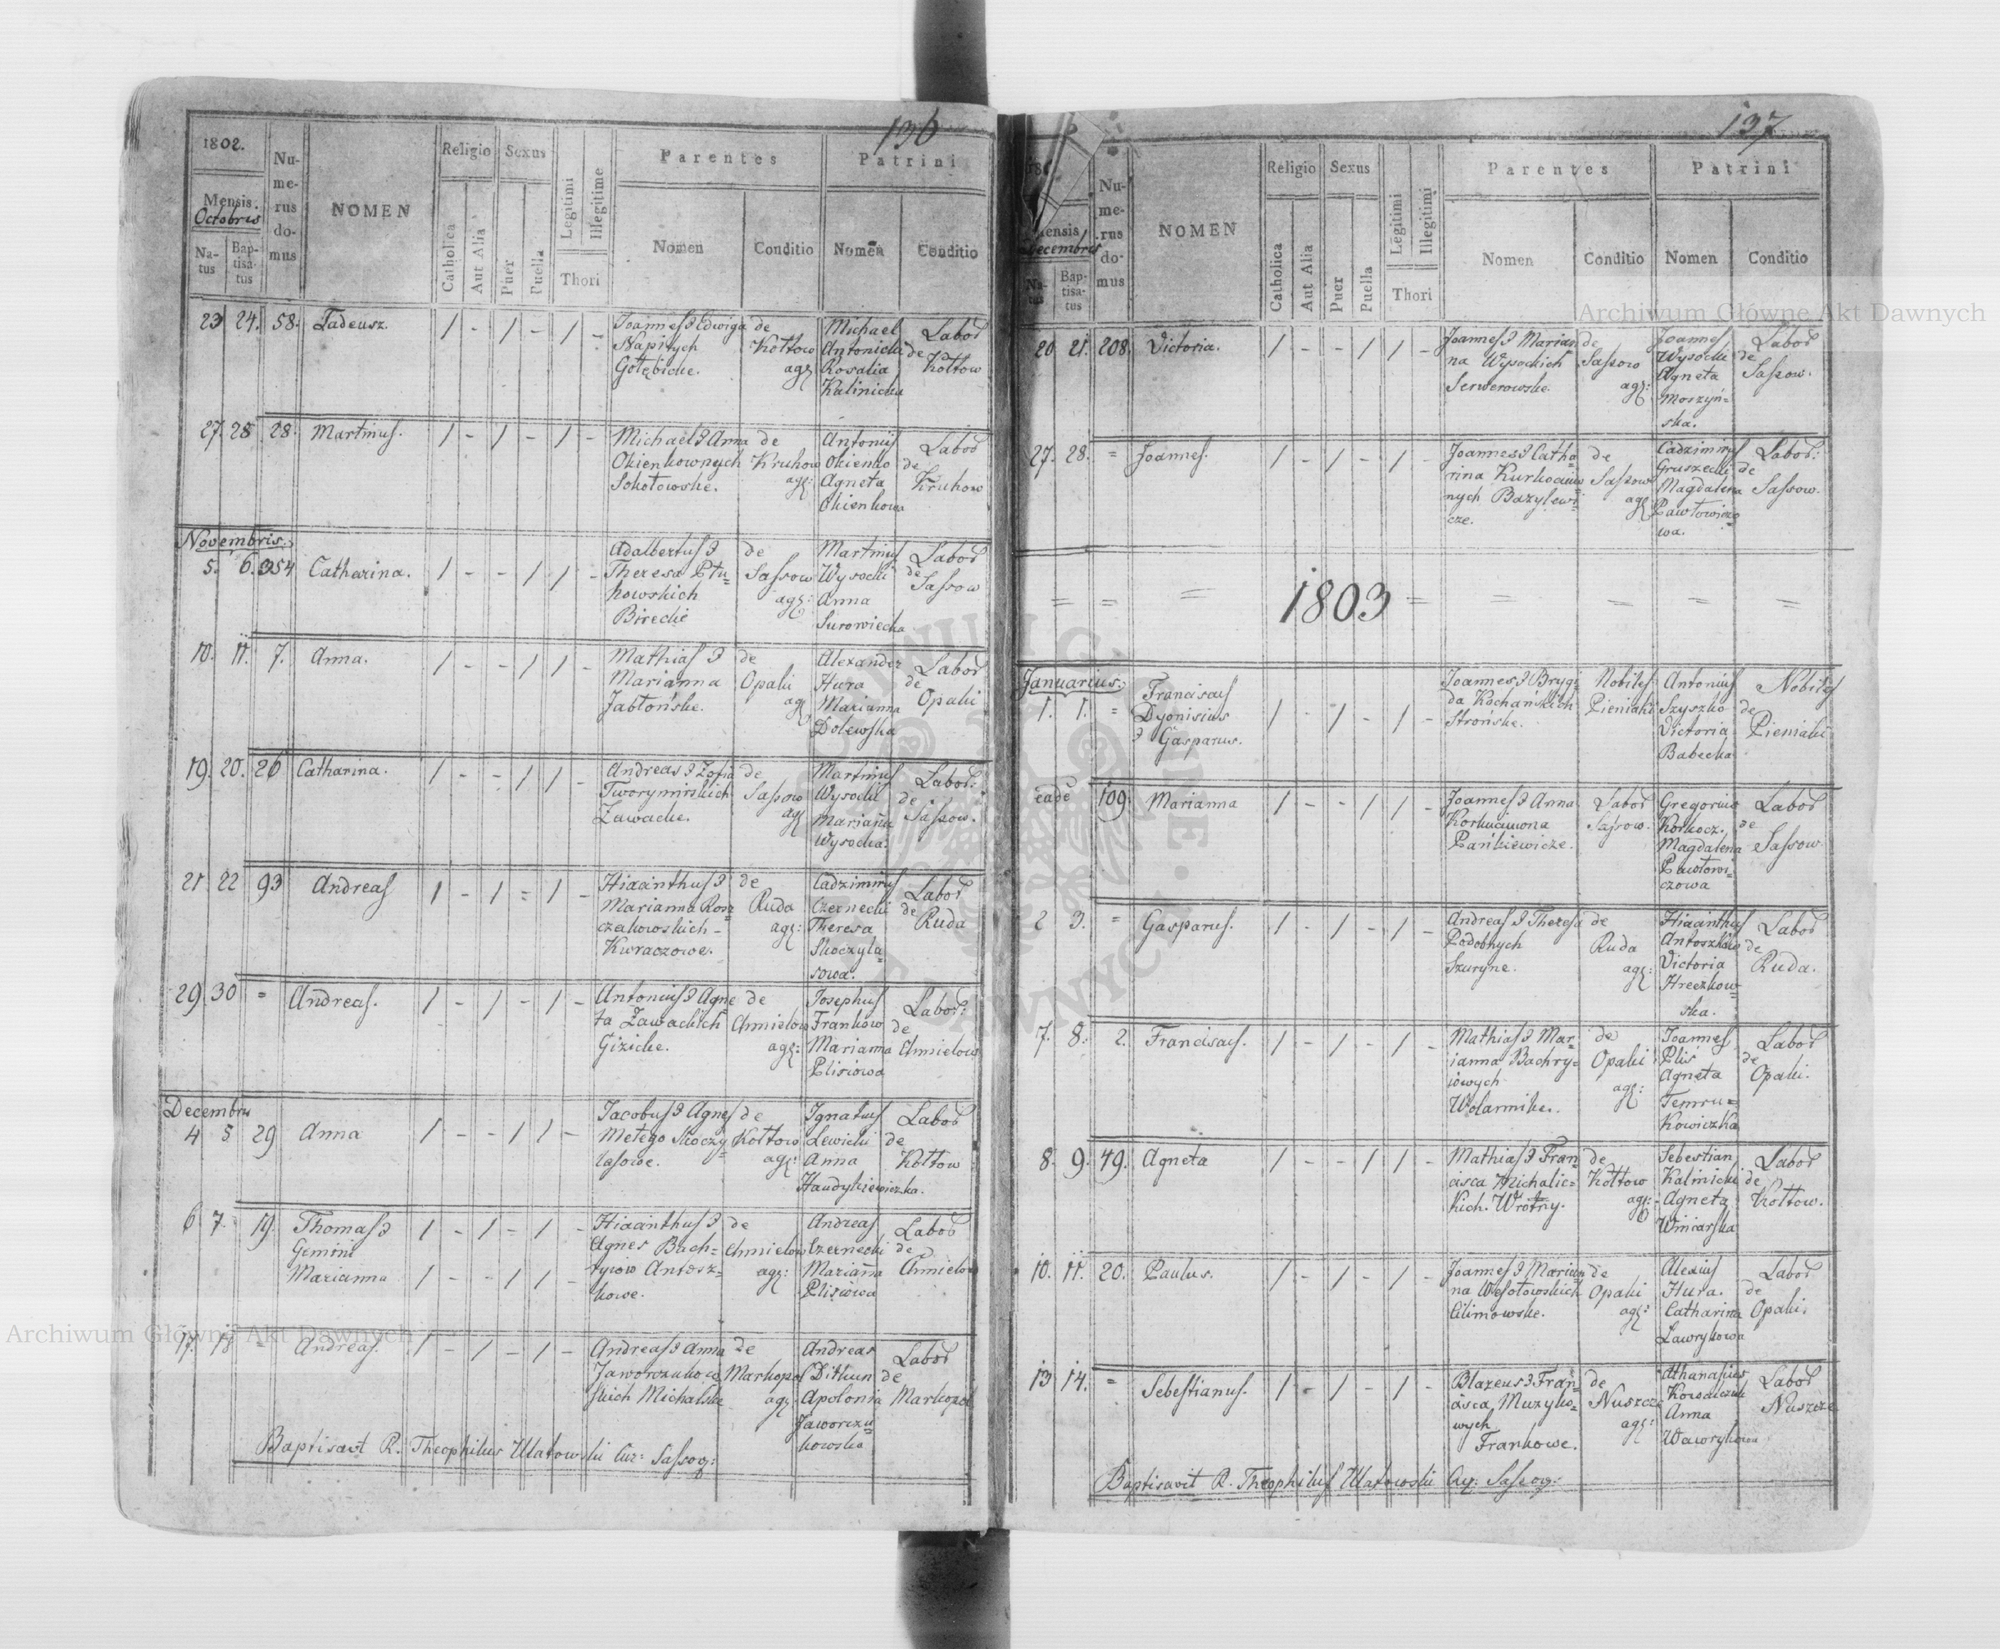 136
1802.
Mensis
Octobris
Natus
Baptisatus
Numerus domus
NOMEN
Religio
Catholica
Aut Alia
Sexus
Puer
Puella
Legitimi
Illegitime
Thori
Parentes
Nomen
Conditio
Patrini
Nomen
Conditio
23 24. 58. Tadeusz. / - / - / -
Joannes & Edwiga
Napitych
Gołębicke.
de
Kołtow
agr
Michael
Antonicki
Rosalia
Kalinicka
Labor
de
Kołtow
27. 28 28. Martinus. / - / - / -
Michael & Anna
Okienkownych
Sokołowske.
de
Kruhow
agr:
Antonius
Okienko
Agneta
Okienkowa
Labor
de
Kruhow
Novembris.
5. 6. 254 Catharina. / - - / / -
Adalbertus &
Theresa Ptu=
kowskich
Birecke
de
Sassow
agr:
Martinus
Wysocki
Anna
Surowiecka
Labor
de
Sassow
10. 11. 7. Anna. / - - / / -
Mathias &
Marianna
Jabłońske.
de
Opaki
agr
Alexander
Hura
Marianna
Dolewska
Labor
de
Opaki
19. 20. 26 Catharina. / - - / / -
Andreas & Zofia
Tworymirskich
Zawacke.
de
Sassow
agr
Martinus
Wysocki
Marianna
Wysocka.
Labor:
de
Sassow.
21 22 93 Andreas / - / = / -
Hiacinthus &
Marianna Rosz=
czakowskich-
Kuraczowe.
de
Ruda
agr:
Cadzimirus
Czernecki
Theresa
Skoczyla=
sowa.
Labor
de
Ruda
29. 30 = Andreas. / - / - / -
Antonius & Agne
ta Zawackich
Gizicke.
de
Chmielow
agr:
Josephus
Frankow
Marianna
Plisiowa
Labor:
de
Chmielow
Decembris
4 5 29 Anna / - - / / -
Jacobus & Agnes
Metego Skoczy=
lasowe.
de
Kołtow
agr:
Ignatius
Lewicki
Anna
Handykiewiczka.
Labor
de
Kołtow
6 7. 19. Thomas & / - / - / -
Gemini
Marianna / - - / / -
Hiacinthus &
Agnes Bach=
rycow Antosz=
kowe.
de
Chmielow
agr:
Andreas
Czernecki
Marianna
Plisiowa
Labor
de
Chmielow
17. 18 = Andreas. / - / - / -
Andreas & Anna
Jaworczukow
skich Michalske
de
Markopol
agr.
Andreas
Ditkun
Apolonia
Jaworczu=
kowska
Labor
de
Markopol
Baptisavit R. Theophilus Ulatowski Cur: Sassov:
137
Mensis
Decembris
Natus
Baptisatus
Numerus domus
NOMEN
Religio
Catholica
Aut Alia
Sexus
Puer
Puella
Legitimi
Illegitimi
Thori
Parentes
Nomen
Conditio
Patrini
Nomen
Conditio
20. 21. 208. Victoria. / - - / / -
Joannes & Marian
na Wysockich
Serwerowske.
de
Sassow
agr:
Joannes
Wysocki
Agneta
Moszyń=
ska.
Labor
de
Sassow.
27. 28. = Joannes. / - / - / -
Joannes & Catha=
rina Kurkocium
nych Bazylewi=
cze.
de
Sassow
agr:
Cadzimirus
Gruszecki
Magdalena
Pawłowiczo
wa.
Labor:
de
Sassow.
= = = 1803 = = = = =
Januarius:
1. 1. = Franciscus
Dyonisius
& Gasparus. / - / - / -
Joannes & Brygi=
da Kochańskich
Strońske.
Nobiles
Pieniaki
Antonius
Szyszko
Victoria
Babecka
Nobiles
de
Pieniaki
eade 109. Marianna / - - / / -
Joannes & Anna
Korkuciuwona
Pańkiewicze.
Labor
Sassow.
Gregorius
Korkocz.
Magdalena
Pawłowi=
czowa
Labor
de
Sassow
2 3. = Gasparus. / - / - / -
Andreas & Theresa
Podobnych
Szuryne.
de
Ruda
agr:
Hiacinthus
Antoszkow
Victoria
Hreczkow=
ska.
Labor
de
Ruda.
7. 8. 2. Franciscus. / - / - / -
Mathias & Mar=
ianna Bachry=
iowych
Wolarnike.
de
Opaki
agr:
Joannes
Plis
Agneta
Temru=
kowiczka
Labor
de
Opaki.
8. 9. 49. Agneta / - - / / -
Mathias & Fran=
cisca Michalic=
kich. Wrotny.
de
Kołtow
agr:
Sebestian
Kalinicki
Agneta
Winiarska
Labor
de
Kołtow.
10. 11. 20. Paulus. / - / - / -
Joannes & Marian
na Wesołowskich
Climowske.
de
Opaki
agr:
Alexius
Hura.
Catharina
Ławrykowa
Labor
de
Opaki.
13 14. = Sebestianus. / - / - / -
Blazeus & Fran=
cisca, Muzyko=
wych
Frankowe.
de
Nuszcze
agr:
Athanasius
Kowalczuk
Anna
Wawrykowa
Labor
Nuszcze
Baptisavit R. Theophilus Ulatowski Cur: Sassov:
Archiwum Główne Akt Dawnych
Archiwum Główne Akt Dawnych